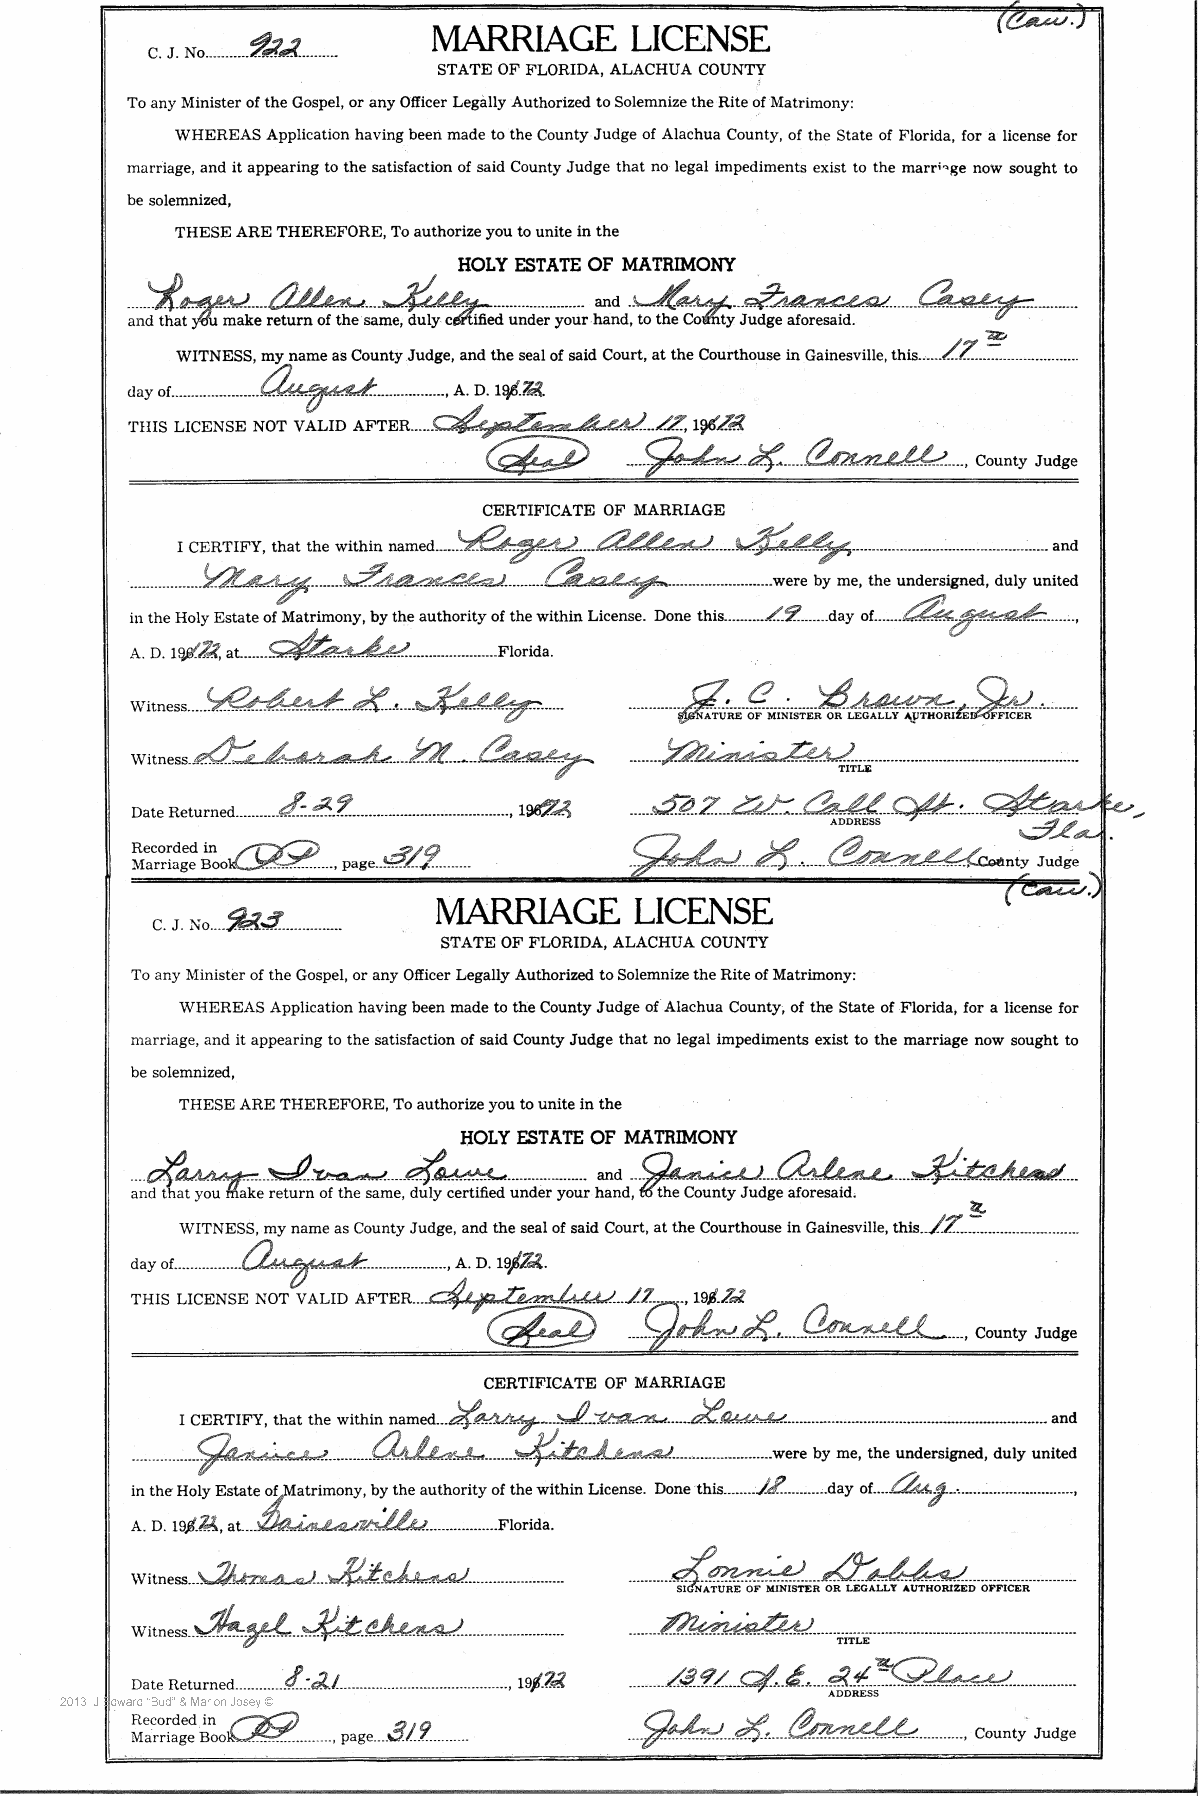 (Cau.)
C. J. No. 922 MARRIAGE LICENSE
STATE OF FLORIDA, ALACHUA COUNTY
To any Minister of the Gospel, or any Officer Legally Authorized to Solemnize the Rite of Matrimony:
WHEREAS Application having been made to the County Judge of Alachua County, of the State of Florida, for a license for
marriage, and it appearing to the satisfaction of said County Judge that no legal impediments exist to the marriage now sought to
be solemnized,
THESE ARE THEREFORE, To authorize you to unite in the
HOLY ESTATE OF MATRIMONY
Roger Allen Kelly and Mary Frances Casey
and that you make return of the same, duly certified under your hand, to the County Judge aforesaid.
WITNESS, my name as County Judge, and the seal of said Court, at the Courthouse in Gainesville, this 17th
day of August, A. D. 1972.
THIS LICENSE NOT VALID AFTER September 17, 1972
(Seal) John L. Connell, County Judge
CERTIFICATE OF MARRIAGE
I CERTIFY, that the within named Roger Allen Kelly and
Mary Frances Casey were by me, the undersigned, duly united
in the Holy Estate of Matrimony, by the authority of the within License. Done this 19 day of August,
A. D. 1972, at Starke Florida.
Witness Robert L. Kelly J. C. Brown, Jr.
SIGNATURE OF MINISTER OR LEGALLY AUTHORIZED OFFICER
Witness Deborah M. Casey Minister
TITLE
Date Returned 8-29, 1972 507 W. Call St. Starke, Fla.
ADDRESS
Recorded in
Marriage Book PP, page 319 John L. Connell, County Judge
(Cau.)
C. J. No. 923 MARRIAGE LICENSE
STATE OF FLORIDA, ALACHUA COUNTY
To any Minister of the Gospel, or any Officer Legally Authorized to Solemnize the Rite of Matrimony:
WHEREAS Application having been made to the County Judge of Alachua County, of the State of Florida, for a license for
marriage, and it appearing to the satisfaction of said County Judge that no legal impediments exist to the marriage now sought to
be solemnized,
THESE ARE THEREFORE, To authorize you to unite in the
HOLY ESTATE OF MATRIMONY
Larry Ivan Lowe and Janice Arlene Kitchens
and that you make return of the same, duly certified under your hand, to the County Judge aforesaid.
WITNESS, my name as County Judge, and the seal of said Court, at the Courthouse in Gainesville, this 17th
day of August, A. D. 1972.
THIS LICENSE NOT VALID AFTER September 17, 1972
(Seal) John L. Connell, County Judge
CERTIFICATE OF MARRIAGE
I CERTIFY, that the within named Larry Ivan Lowe and
Janice Arlene Kitchens were by me, the undersigned, duly united
in the Holy Estate of Matrimony, by the authority of the within License. Done this 18 day of Aug.,
A. D. 1972, at Gainesville Florida.
Witness Thomas Kitchens Lonnie Dobbs
SIGNATURE OF MINISTER OR LEGALLY AUTHORIZED OFFICER
Witness Hazel Kitchens Minister
TITLE
Date Returned 8-21, 1972 1391 S.E. 24th Place
ADDRESS
2013 J Edward "Bud" & Marion Josey ©
Recorded in
Marriage Book PP, page 319 John L. Connell, County Judge